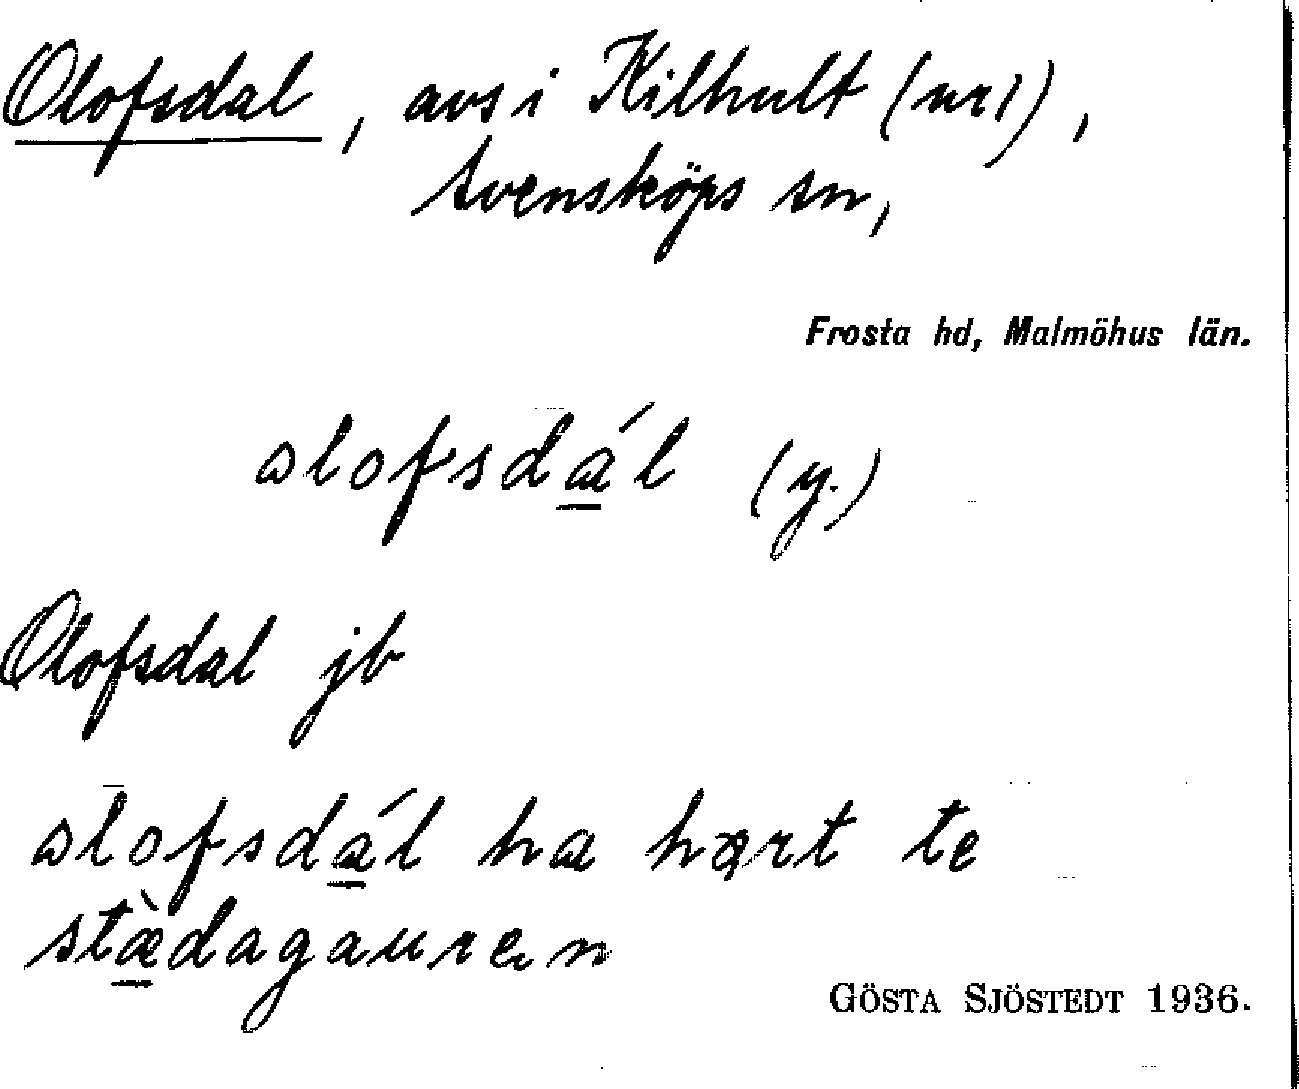 Olofsdal, avs i Kilhult (nr 1),
Svensköps sn,
Frosta hd, Malmöhus län.
olofsdál (y.)
Olofsdal jb
olofsdál ha hørt te
stàdagauren
GÖSTA SJÖSTEDT 1936.